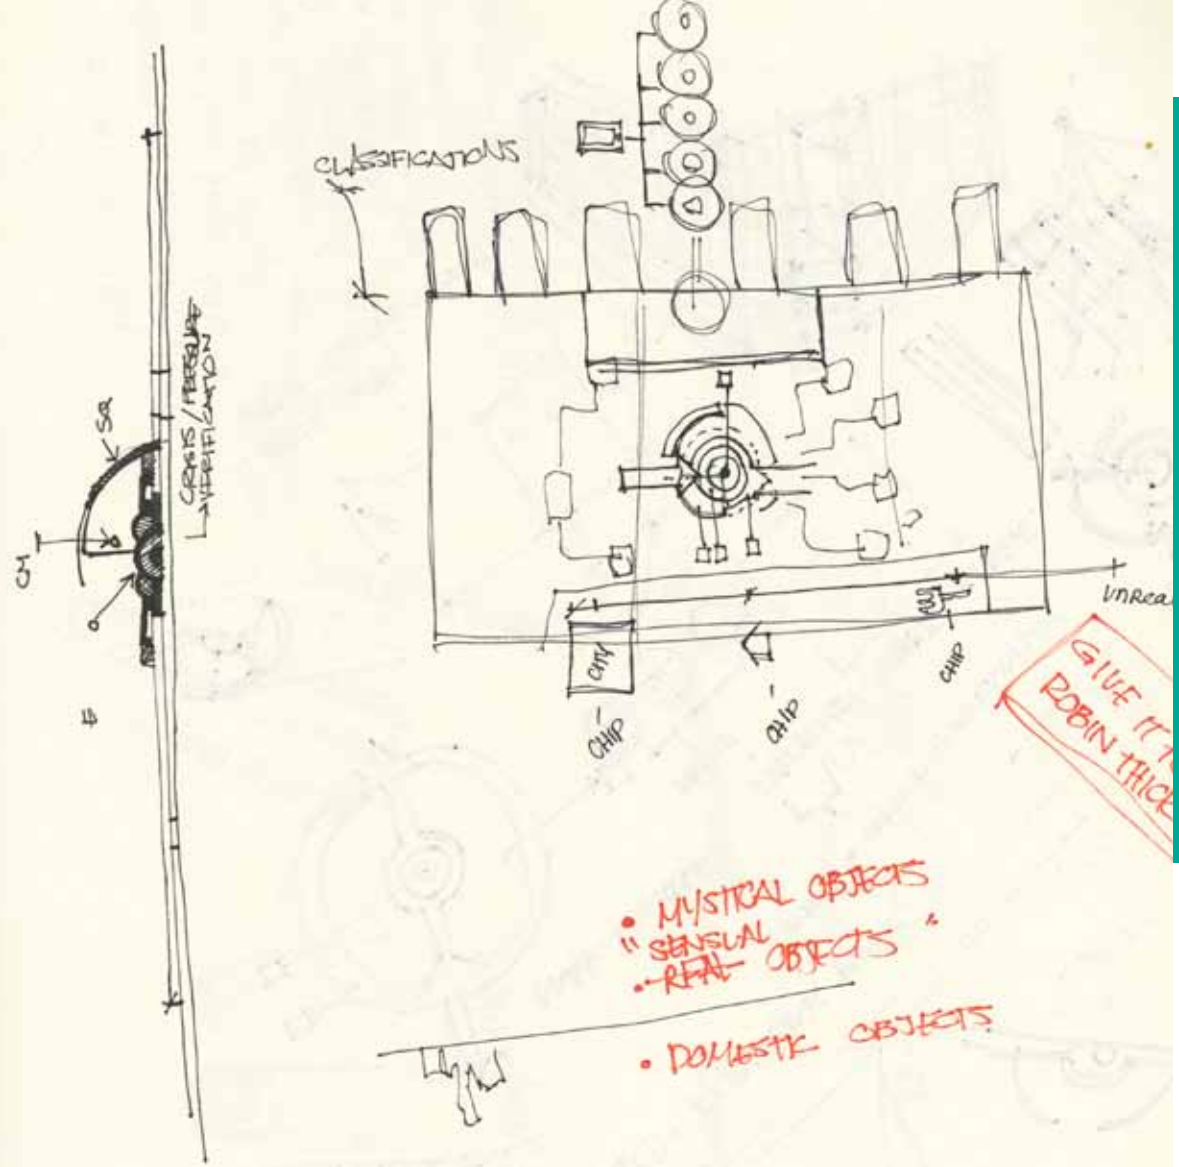 CLASSIFICATIONS
CRISIS / PRESSURE
VERIFICATION
SQ
CM
CITY
CHIP
CHIP
CHIP
UNREA
GIVE IT TO
ROBIN THICKE
• MYSTICAL OBJECTS
" SENSUAL "
• REAL OBJECTS
• DOMESTIC OBJECTS